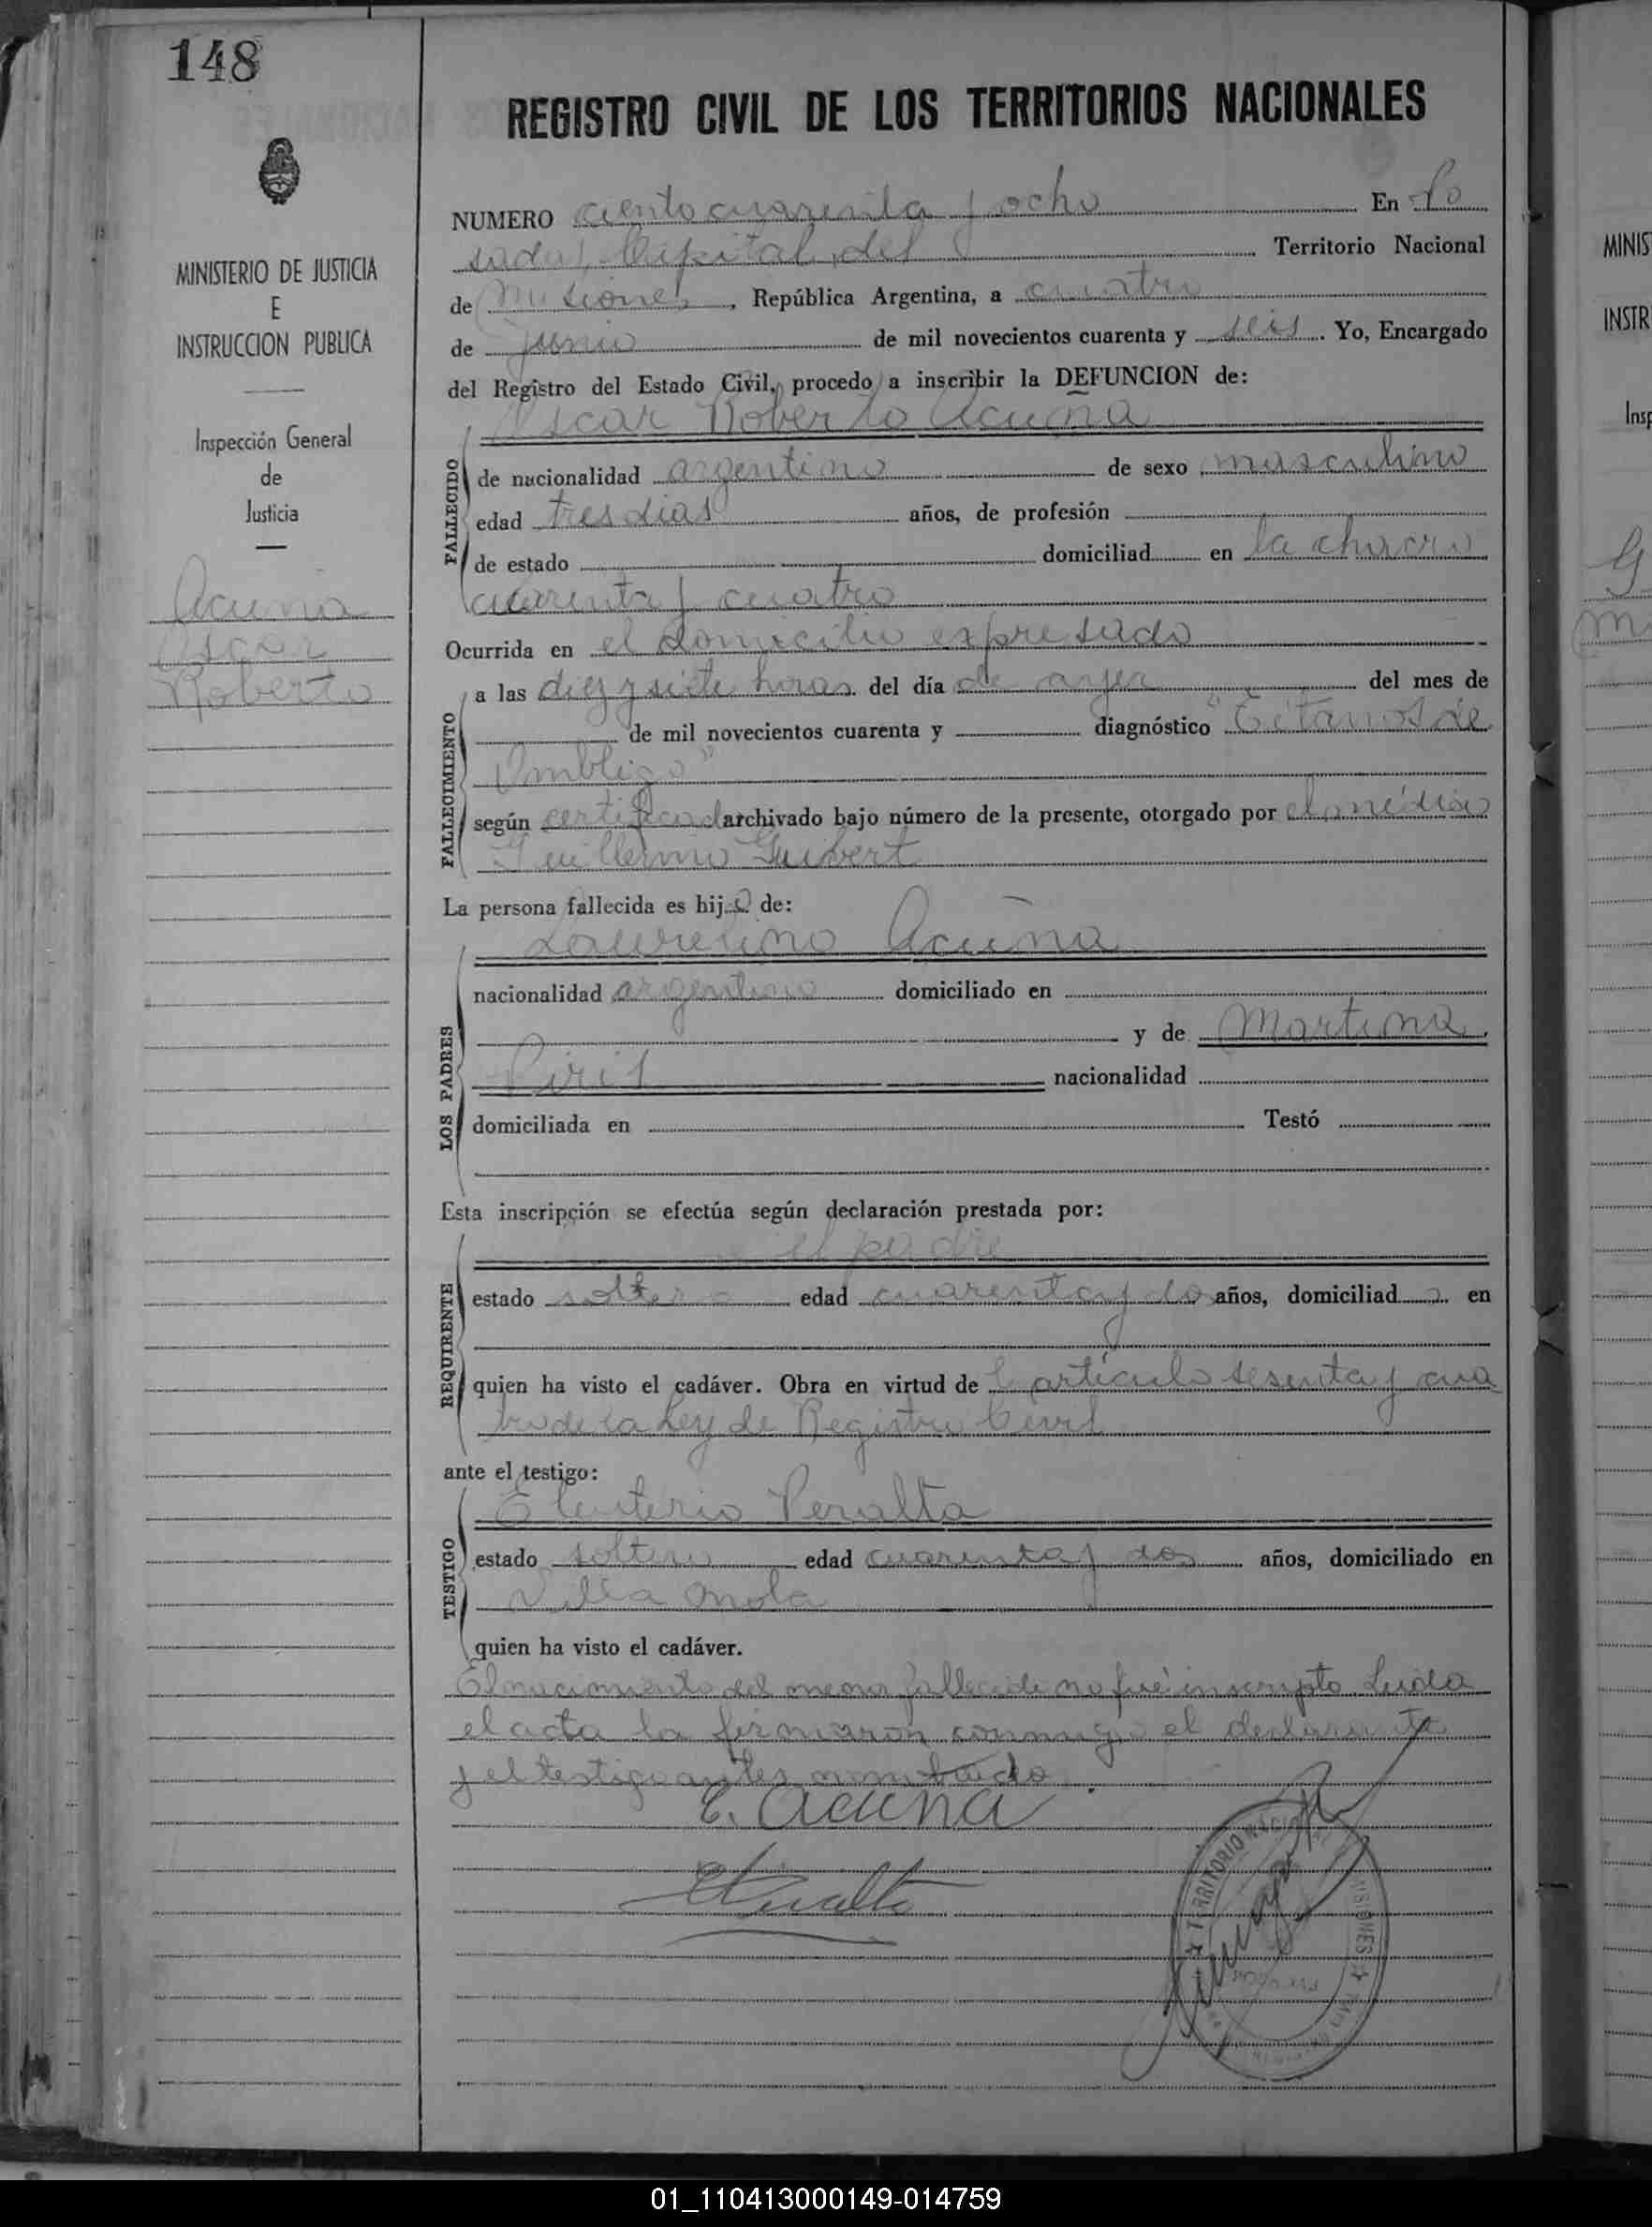 148
REGISTRO CIVIL DE LOS TERRITORIOS NACIONALES
MINISTERIO DE JUSTICIA
E
INSTRUCCION PUBLICA
Inspección General
de
Justicia
Acuña
Oscar
Roberto
NUMERO ciento cuarenta y ocho En Po
sadas, Capital del Territorio Nacional
de Misiones, República Argentina, a cuatro
de junio de mil novecientos cuarenta y seis. Yo, Encargado
del Registro del Estado Civil, procedo a inscribir la DEFUNCION de:
Oscar Roberto Acuña
FALLECIDO
de nacionalidad argentino de sexo masculino
edad tres dias años, de profesión
de estado domiciliad en la chacra
cuarenta y cuatro
Ocurrida en el domicilio expresado
FALLECIMIENTO
a las diez y siete horas del día de ayer del mes de
de mil novecientos cuarenta y diagnóstico "Tétanos de
Ombligo"
según certificado archivado bajo número de la presente, otorgado por el médico
Guillermo Guibert
La persona fallecida es hijo de:
LOS PADRES
Laurelino Acuña
nacionalidad argentino domiciliado en
y de Martina
Piris nacionalidad
domiciliada en Testó
Esta inscripción se efectúa según declaración prestada por:
REQUIRENTE
el padre
estado soltero edad cuarenta y dos años, domiciliado en
quien ha visto el cadáver. Obra en virtud del artículo sesenta y cua
tro de la Ley de Registro Civil
ante el testigo:
TESTIGO
Eleuterio Peralta
estado soltero edad cuarenta y dos años, domiciliado en
Villa Mola
quien ha visto el cadáver.
El nacimiento del menor fallecido no fué inscripto. Leida
el acta la firmaron conmigo el declarante
y el testigo antes nombrado.
E. Acuña
EPeralta
TERRITORIO NACIONAL MISIONES
MINIS
INSTR
Insp
G
01_110413000149-014759